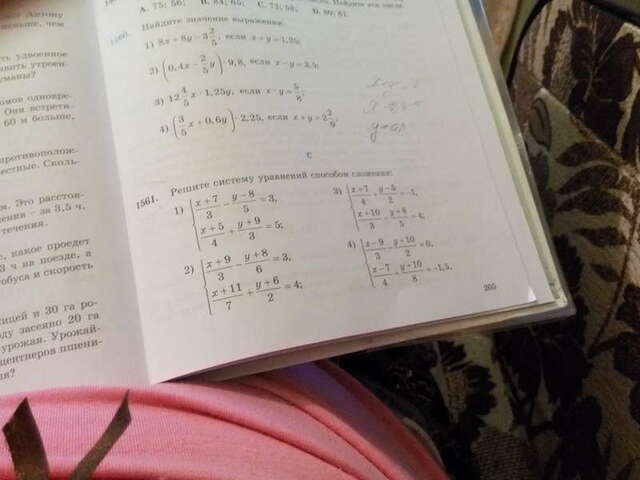 Антону
меньше, чем
ть удвоенное
бавить утроен-
уманы?
Они встрети-
60 м больше,
противополож-
естные. Сколь-
м. Это расстоя-
ения – за 3,5 ч,
течения.
е, какое проедет
3 ч на поезде, а
тобуса и скорость
ницей и 30 га ро-
оду засеяно 20 га
урожая. Урожай-
центнеров пшени-
ля?
A. 75; 56; B. 84; 65; C. 73, 58; D. 80; 81.
1560. Найдите значение выражения:
1) 8x + 8y – 3 2/5, если x + y = 1,25;
2) (0,4x – 2/5 y) · 9,8, если x – y = 2,5;
3) 12 4/5 x · 1,25y, если x · y = 5/8;
4) (3/5 x + 0,6y) · 2,25, если x + y = 2 2/9;
C
1561. Решите систему уравнений способом сложения:
1) { (x+7)/3 – (y–8)/5 = 3,
(x+5)/4 + (y+9)/3 = 5;
2) { (x+9)/3 – (y+8)/6 = 3,
(x+11)/7 + (y+6)/2 = 4;
3) { (x+7)/4 + (y–5)/2 = –1,
(x+10)/3 – (y+8)/5 = 4;
4) { (x–9)/3 – (y+10)/2 = 0,
(x–7)/4 + (y+10)/8 = –1,5.
205